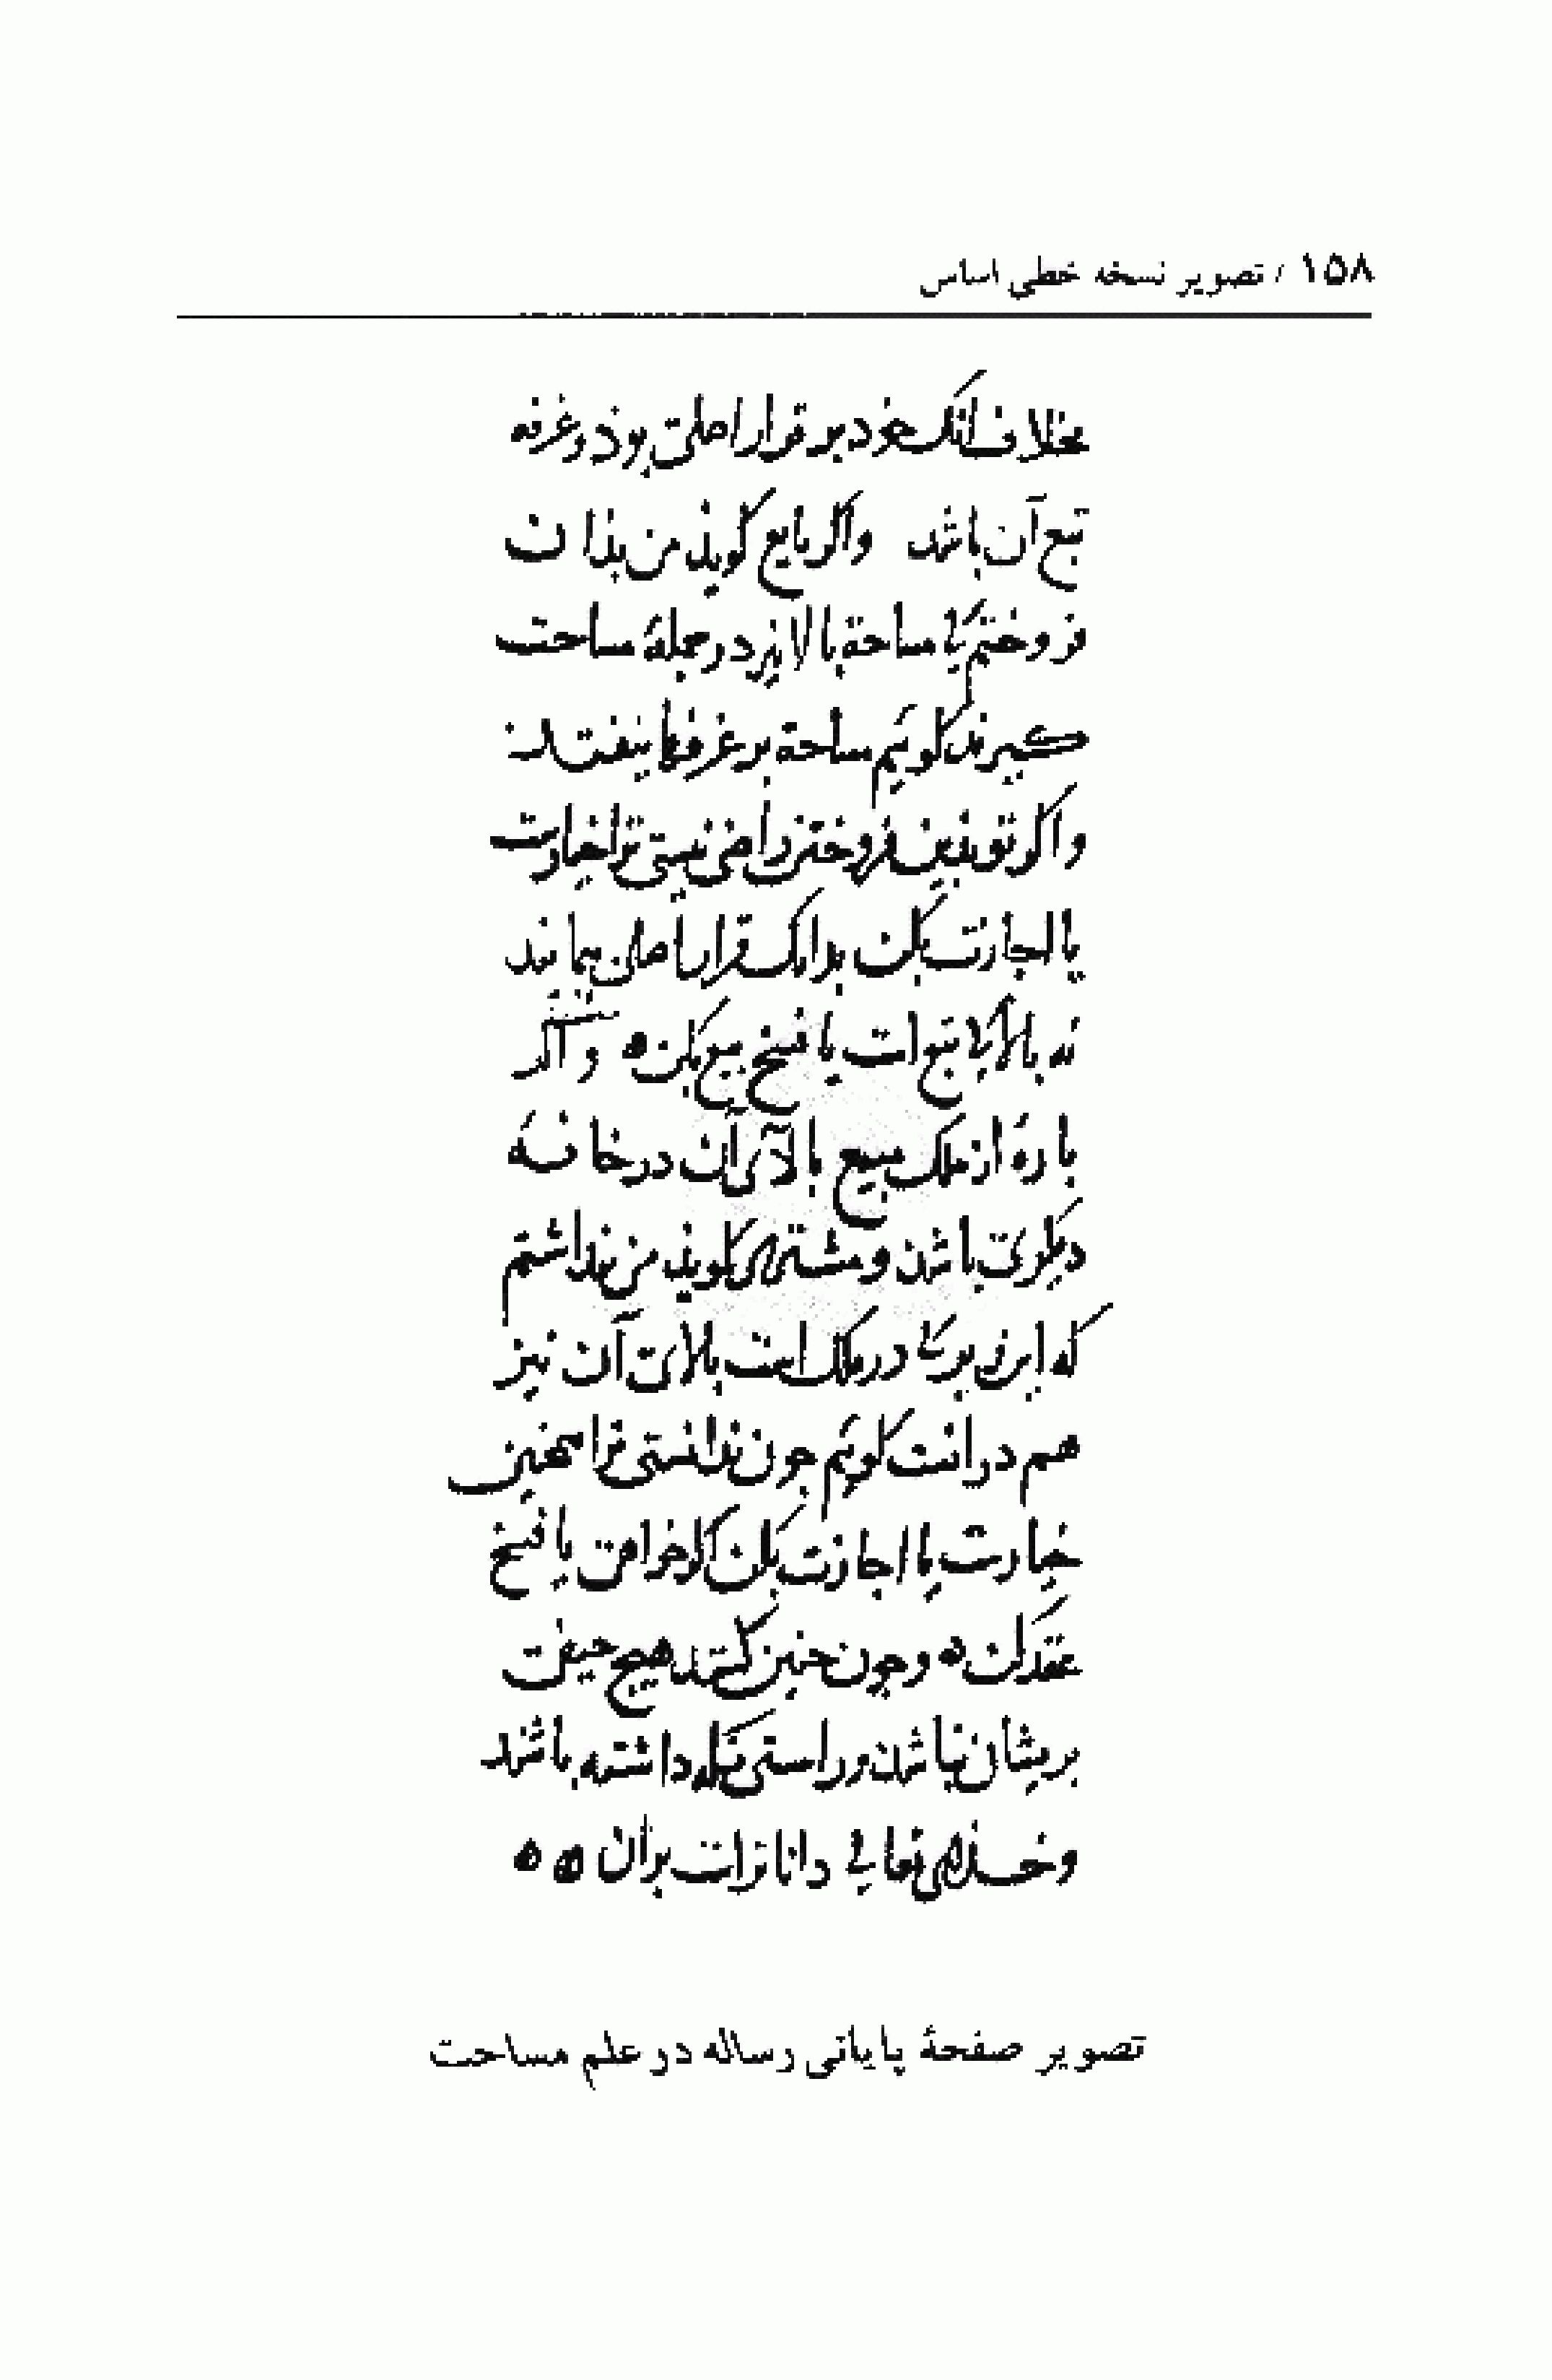 ۱۵۸ / تصویر نسخه خطی اساس
بخلاف انک خود بر قرار اصلی بوذ و غرفه
تبع آن باشد واکر بایع کویذ من بذان
فروختم کی ساحة بالا نیز در جملهٔ ساحت
کیرند کویم ساحة بر غرفها بیفتد
واکر تو بذین فروختن راضی نیستی ترا خیارست
یا اجازت بکن بدانک قرار اصلی بماند
نه بالا کی تبع است یا فسخ بیع بکن ه و اکر
باره از ملک مبیع بالای آن در خانه
دیکری باشد و مشتری کویذ من نداشتم
که این زیر کی در ملک است بالای آن نیز
هم درانست کویم جون ندانستی ترا همجنین
خیارست یا اجازت بکن اکر خواهی یا فسخ
عقد کن ه و جون جنین کنند هیج حیفی
بریشان نباشد و راستی نکه داشته باشند
و خدای تعالی داناتر است بران ه ه ه
تصویر صفحهٔ پایانی رساله در علم مساحت